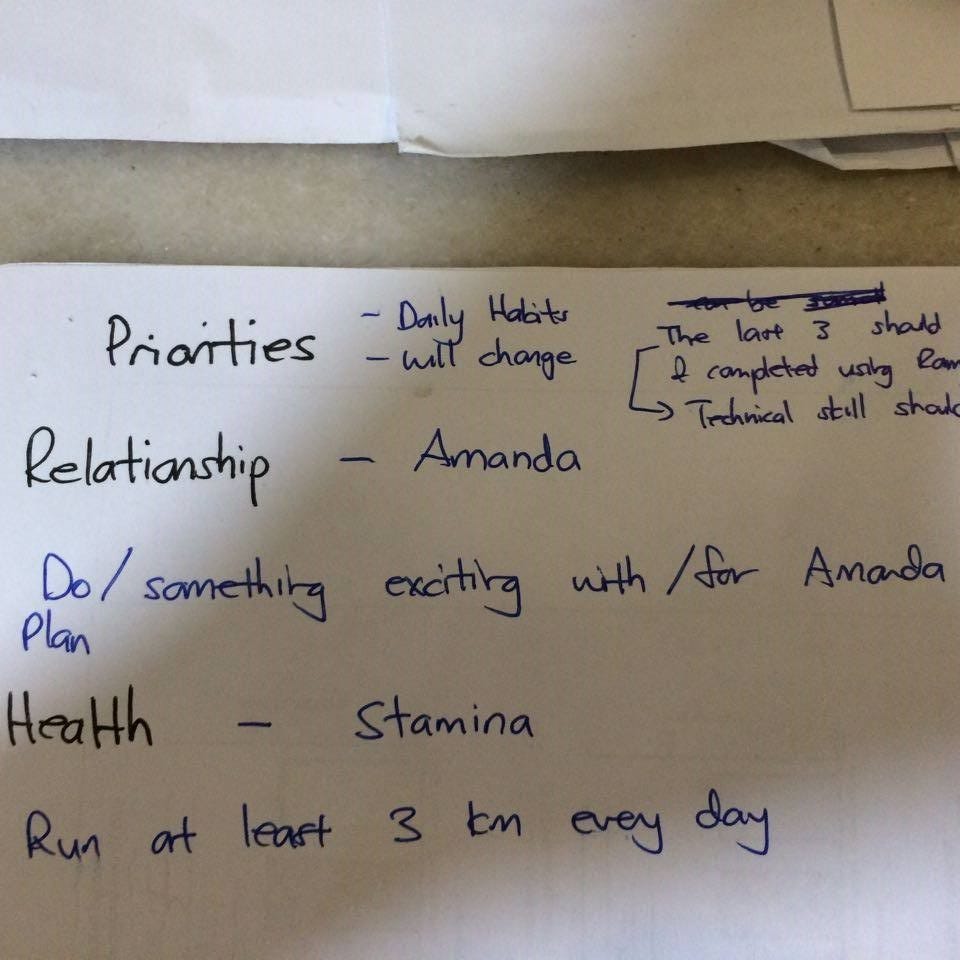 Priorities
- Daily Habits
- will change
can be
The last 3 should
completed using
Technical skill should
Relationship - Amanda
Do/something exciting with/for Amanda
Plan
Health - Stamina
Run at least 3 km every day